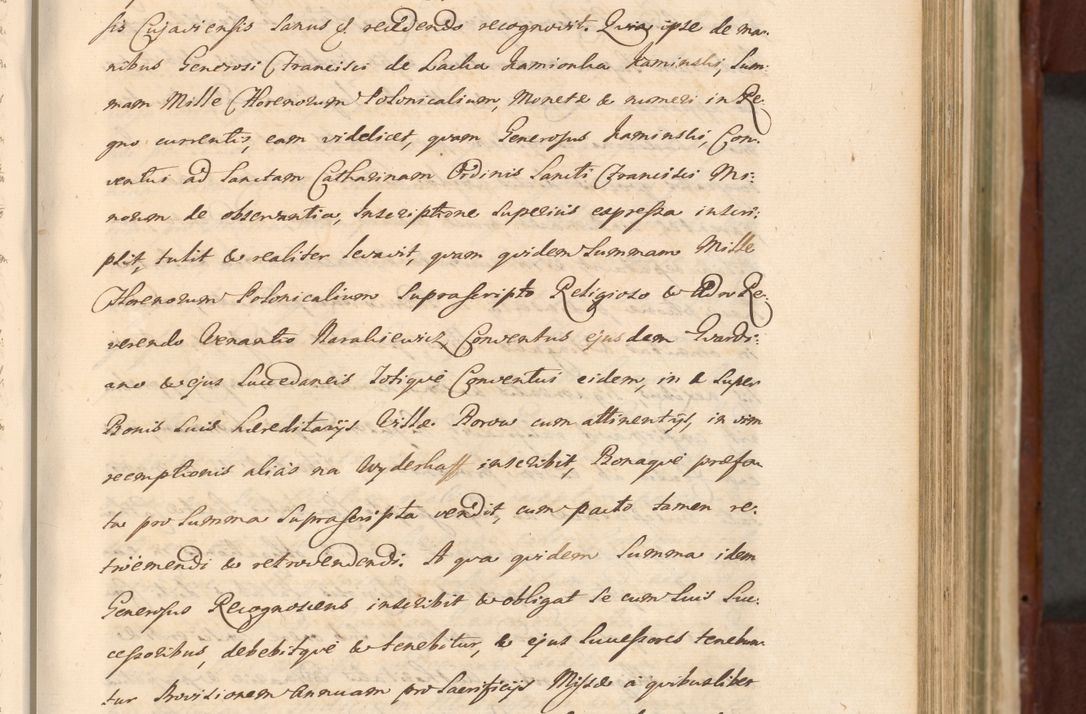 sis Cujaviensis Sanus &. recedendo recognovit. Quia ipse de ma:
nibus Generosi Francisci de Lacka Kamionka Kaminski, Sum:
mam Mille Florenorum Polonicalium, Monetæ & numeri in Re:
gno currentis, eam videlicet, quam Generosus Kaminski, Con:
ventui ad Sanctam Catharinam Ordinis Sancti Francisci Mi:
norum de observantia, Inscriptione superius expressa inscri:
psit, tulit & realiter levavit, quam quidem Summam Mille
Florenorum Polonicalium Suprascripto Religioso & Adm Re:
verendo Venantio Conventus ejusdem Gvardi:
ano & ejus Succedaneis Totique Conventui eidem, in & super
Bonis Suis hæreditarijs Villæ Borow cum attinentijs, in vim
reemptionis alias na Wyderkaff inscribit, Bonaque præfa
ta pro Summa Suprascripta vendit, cum pacto tamen re:
trœmendi & retrovendendi. A qua quidem Summa idem
Generosus Recognoscens inscribit & obligat se cum Suis Suc:
cessoribus, debebitque & tenebitur, & ejus Successores tenebun
tur Provisionem Annuam pro Sacrificijs Missæ a quibuslibet